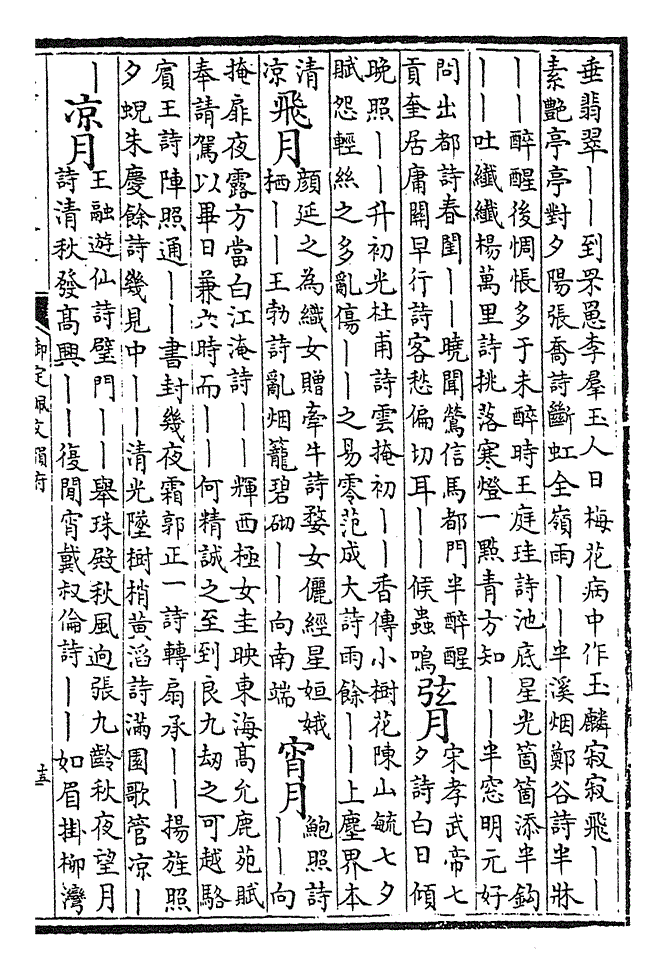 垂翡翠丨丨到罘罳李羣玉人日梅花病中作玉麟寂寂飛丨丨
素艷亭亭對夕陽張喬詩斷虹全嶺雨丨丨半溪烟鄭谷詩半牀
丨丨醉醒後惆悵多于未醉時王庭珪詩池底星光箇箇添半鈎
丨丨吐纖纖楊萬里詩挑落寒燈一點青方知丨丨半窓明元好
問出都詩春閨丨丨曉聞鶯信馬都門半醉醒
貢奎居庸關早行詩客愁偏切耳丨丨候蟲鳴
弦月
宋孝武帝七
夕詩白日傾
晚照丨丨升初光杜甫詩雲掩初丨丨香傳小樹花陳山毓七夕
賦怨輕絲之多亂傷丨丨之易零范成大詩雨餘丨丨上塵界本
清
凉
飛月
顏延之為織女贈牽牛詩婺女儷經星姮娥
栖丨丨王勃詩亂烟籠碧砌丨丨向南端
宵月
鮑照詩
丨丨向
掩扉夜露方當白江淹詩丨丨輝西極女圭映東海高允鹿苑賦
奉請駕以畢日兼六時而丨丨何精誠之至到良九劫之可越駱
賓王詩陣照通丨丨書封幾夜霜郭正一詩轉扇承丨丨揚旌照
夕蜺朱慶餘詩幾見中丨丨清光墜樹梢黃滔詩滿園歌管凉丨
丨
凉月
王融遊仙詩璧門丨丨舉珠殿秋風迥張九齡秋夜望月
詩清秋發高興丨丨復閒宵戴叔倫詩丨丨如眉掛柳灣
御定佩文韻府
十五